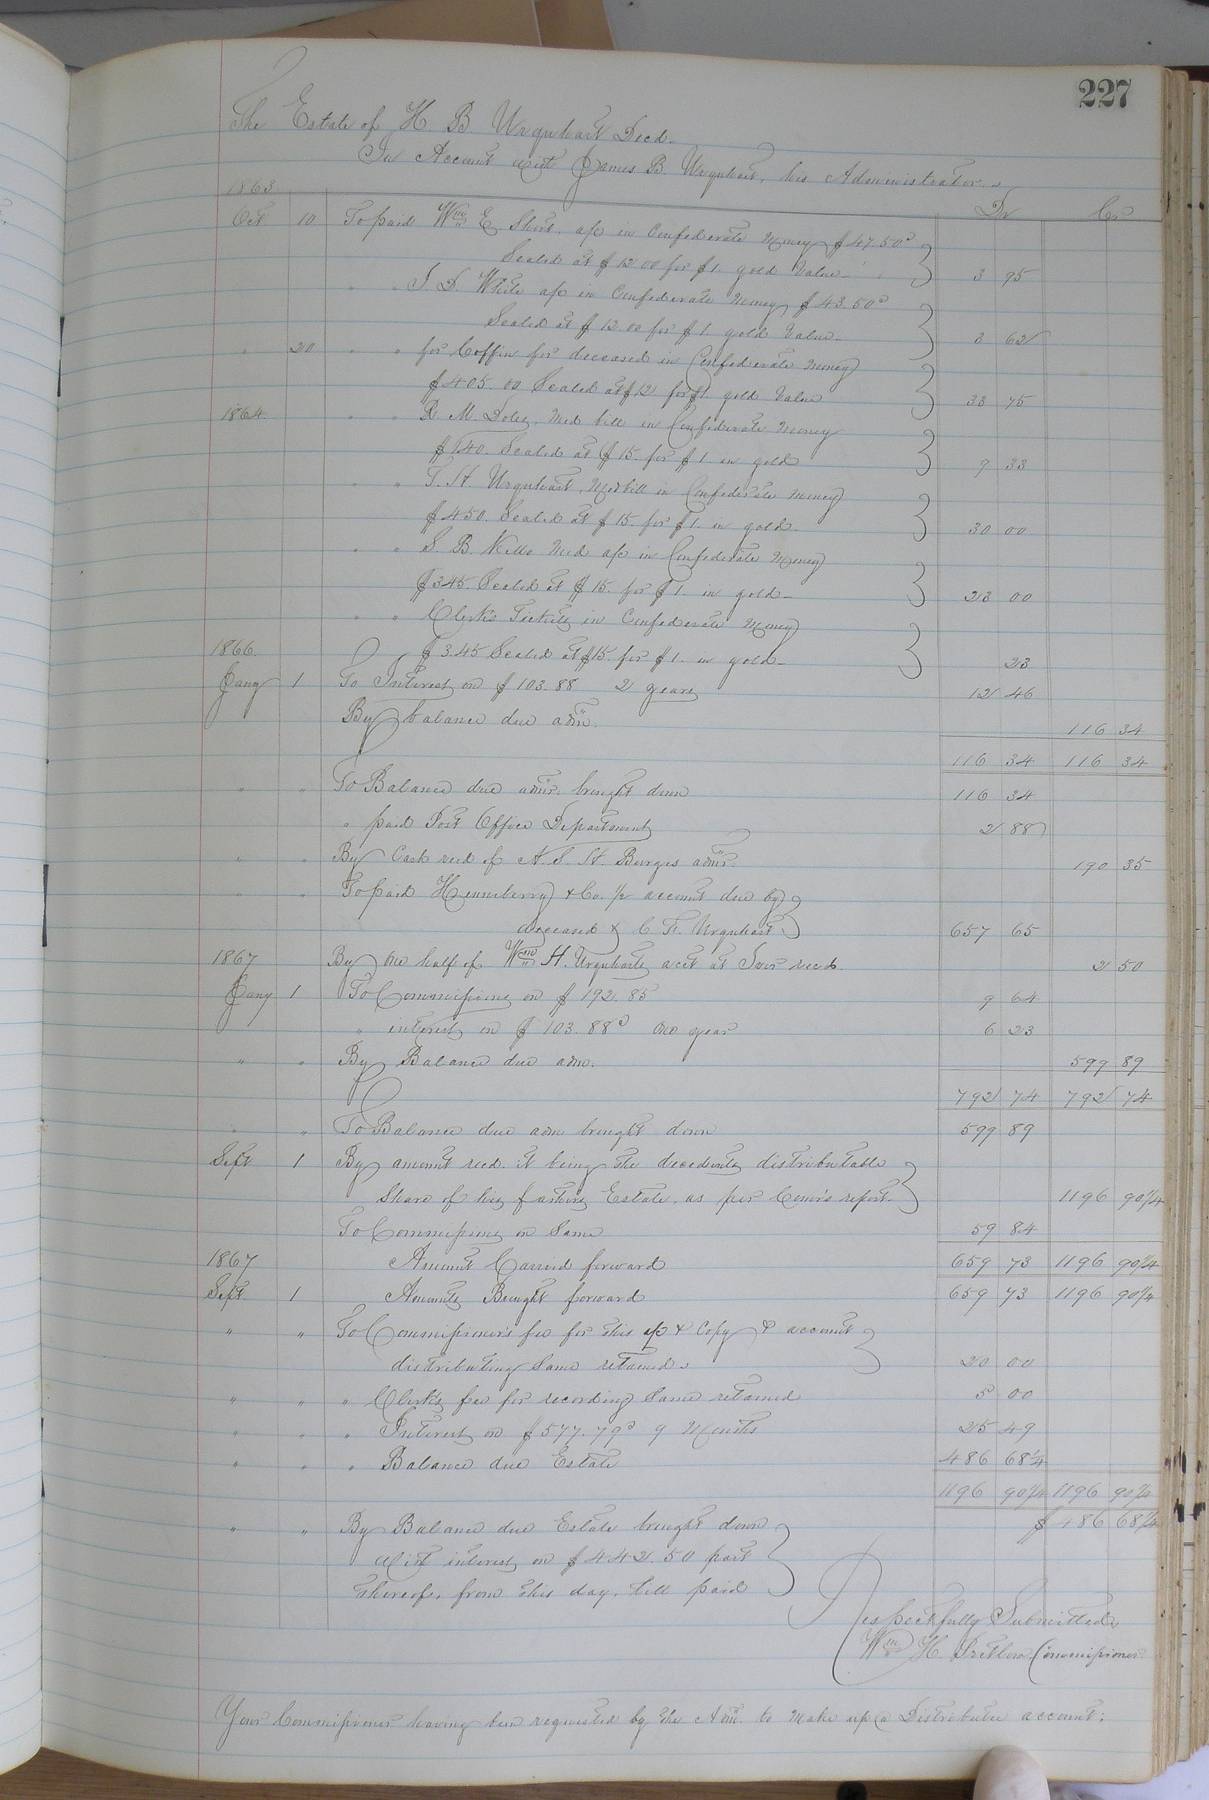 227
The Estate of H. B Urquhart Decd.
In Account with James B. Urquhart, his Administrator.
1863 Dr Cr
Oct 10 To paid Wm E. Short. a/c in Confederate Money $47.50c
Scaled at $12.00 for $1. gold Value 3 95
" " J. D. White a/c in Confederate Money $43.50c
Scaled at $12.00 for $1 gold Value 3 62
" 20 " " for Coffin for deceased in Confederate Money
$405.00 Scaled at $12 for $1. gold Value 33 75
1864 " R. M. Doles, Med bill in Confederate Money
$140. Scaled at $15. for $1 in gold 9 33
" " T. H Urquhart, Med bill in Confederate Money
$450. Scaled at $15. for $1. in gold 30 00
" " S. B. Med a/c in Confederate Money
$345. Scaled at $15. for $1 in gold 23 00
" " Clerk's Tickets in Confederate Money
1866 $3.45 Scaled at $15. for $1. in gold 23
Jany 1 To Interest on $103.88 2 years 12 46
By balance due adm. 116 34
116 34 116 34
" " To Balance due admr. brought down 116 34
" paid Post Office Department 2 88
" " By Cash recd of A. S. H. Burges admr. 190 35
" " To paid Henneberry & Co. 1/2 account due by
deceased & C. F. Urquhart 657 65
1867 By one half of Wm H. Urquharts acct at recd. 2 50
Jany 1 To Commissions on $192.85 9 64
" interest on $103.88c one year 6 23
" " By Balance due adm. 599 89
792 74 792 74
" " To Balance due adm brought down 599 89
Sept 1 By amount recd. it being the decedents distributable
Share of his fathers Estate, as per Comr's report 1196 90 1/4
To Commissions on Same 59 84
1867 Amount Carried forward 659 73 1196 90 1/4
Sept 1 Amounts Brought forward 659 73 1196 90 1/4
" " To Commissioner's fee for this a/c & Copy & account
distributing Same retained. 20 00
" " " Clerks fee for recording Same retained 5 00
" " " Interest on $577.79c 9 Months 25 49
" " " Balance due Estate 486 68 1/4
1196 90 1/4 1196 90 1/4
" " By Balance due Estate brought down $486 68 1/4
with interest on $442.50 part
thereof, from this day, till paid
Respectfully Submitted
Wm H. Pretlow Commissioner
Your Commissioner having been requested by the Adm. to make up a Distributee account;